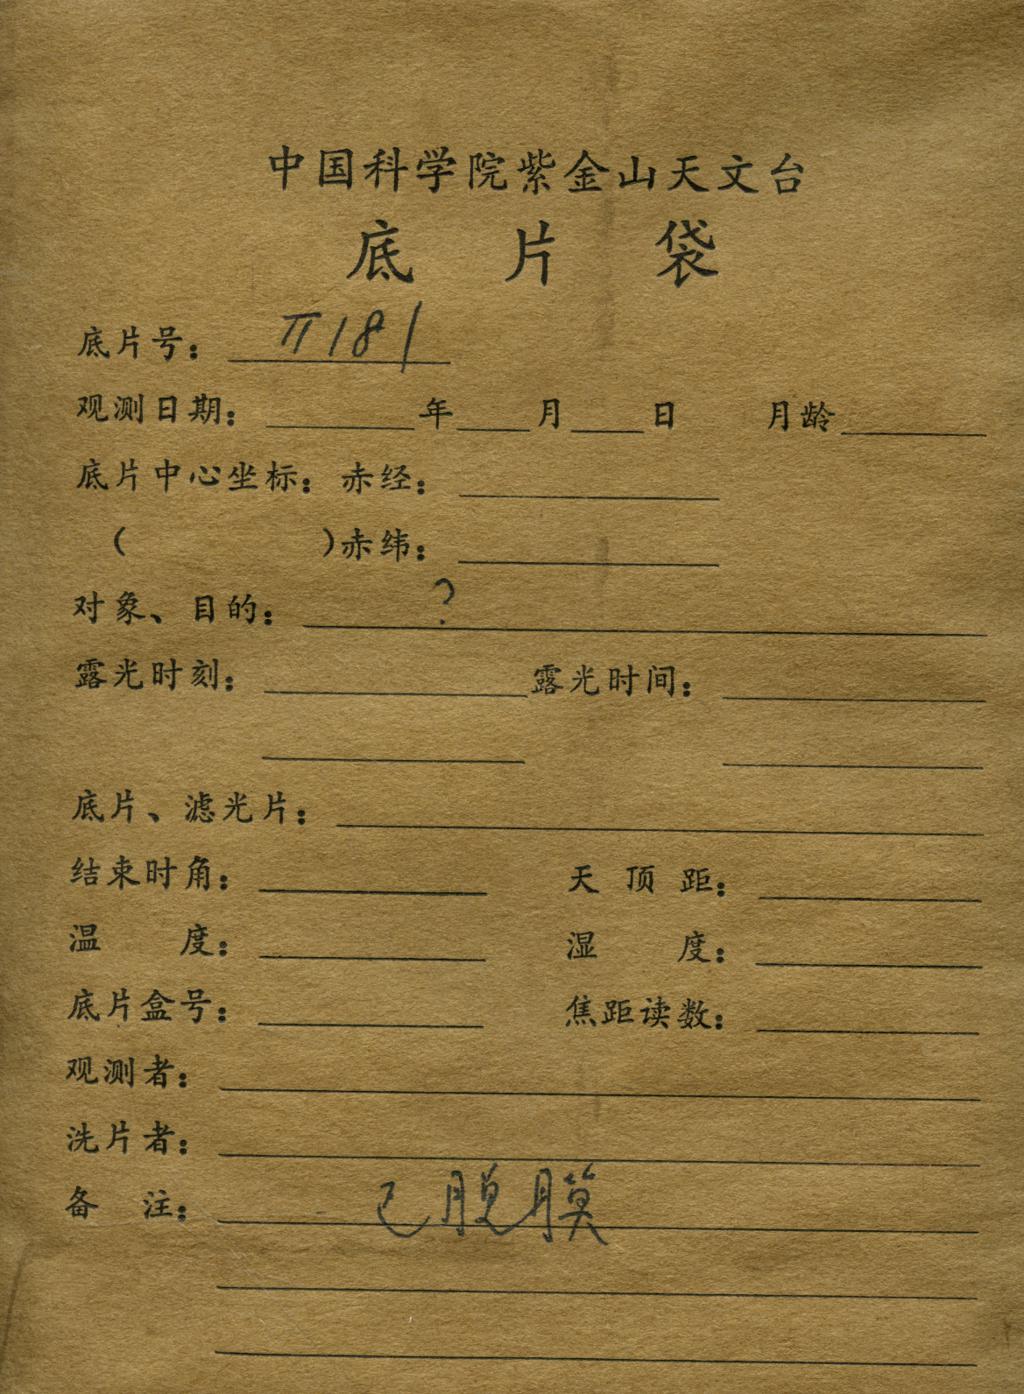 中国科学院紫金山天文台
底片袋
底片号：π181
观测日期：年月日 月龄
底片中心坐标：赤经：
（ ）赤纬：
对象、目的：？
露光时刻： 露光时间：
底片、滤光片：
结束时角： 天顶距：
温度： 湿度：
底片盒号： 焦距读数：
观测者：
洗片者：
备注：已脱膜